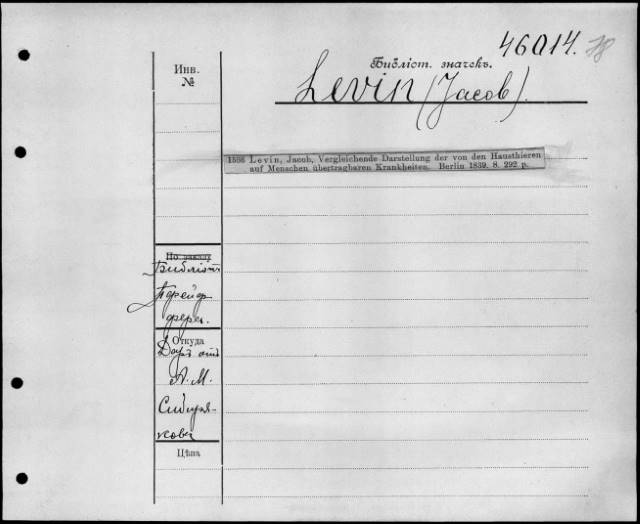 46014. 78
Инв.
№
Библіот. значекъ.
Levin (Jacob).
1586 Levin, Jacob, Vergleichende Darstellung der von den Hausthieren
auf Menschen übertragbaren Krankheiten. Berlin 1839. 8. 292 p.
Библіот.
Прейф
фера.
Откуда
Даръ отъ
А. М.
Сибиря-
кова
Цѣна